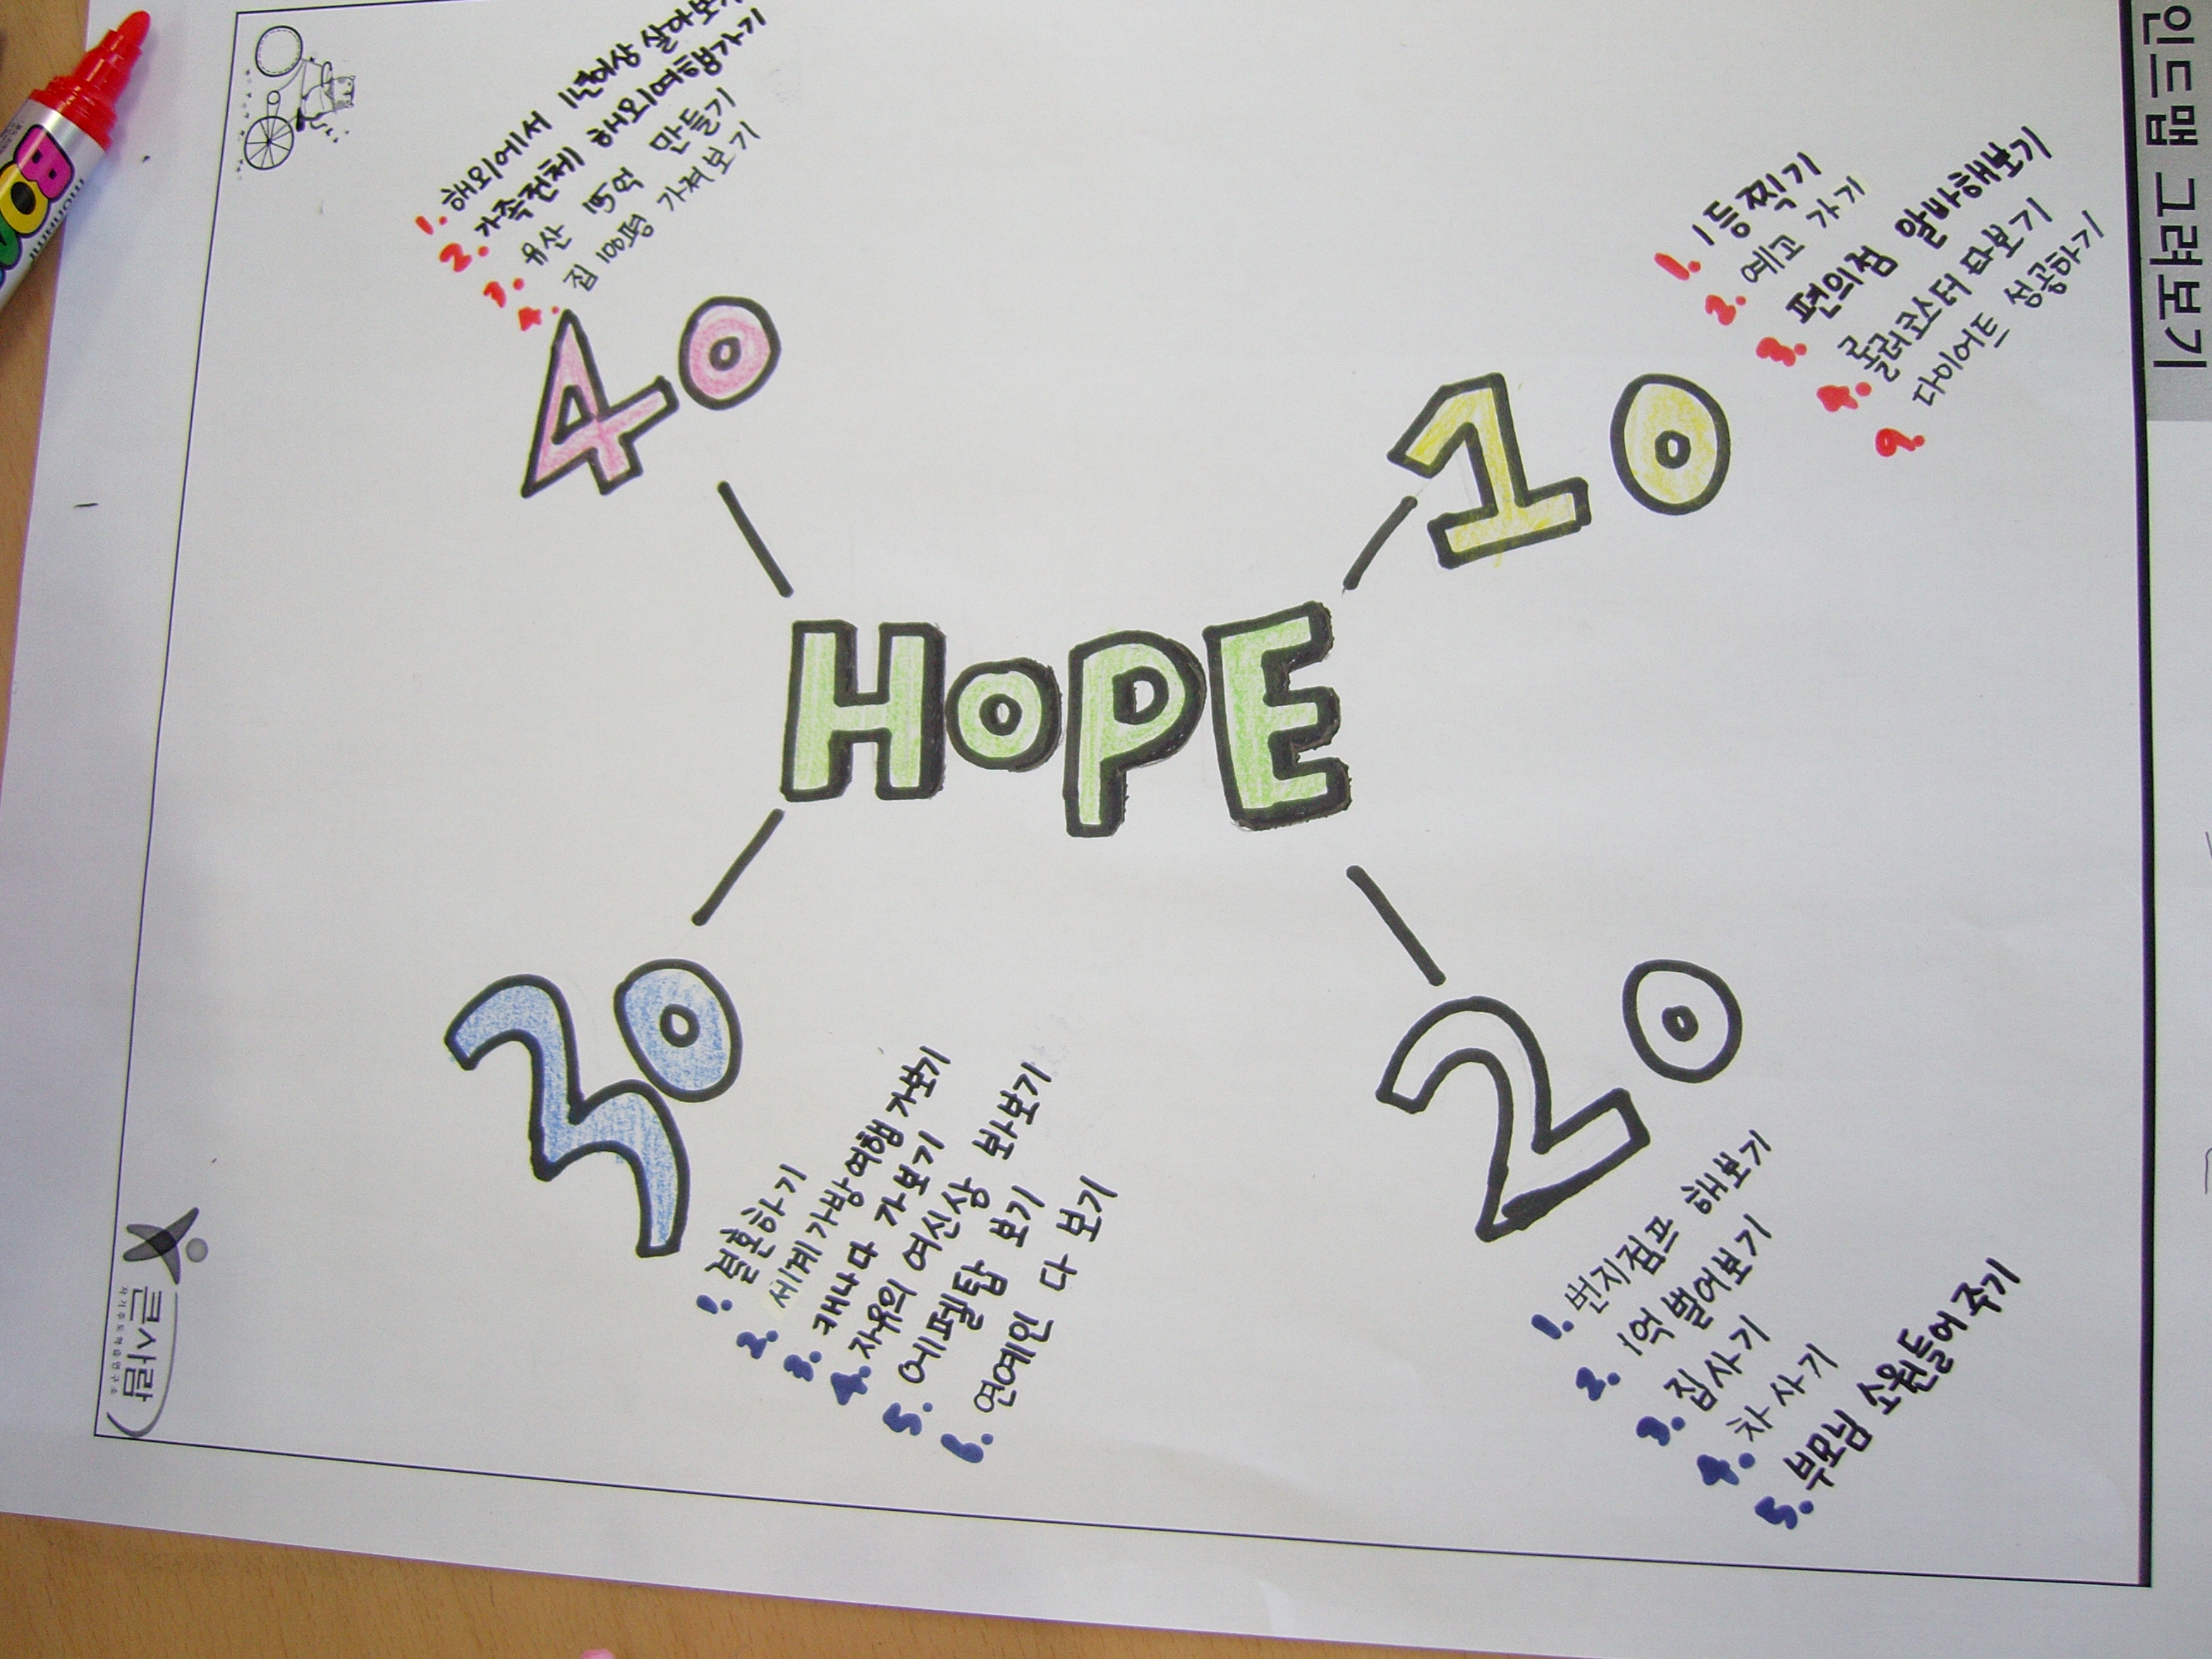 인드맵 그려보기
HOPE
10
1. 1등찍기
2. 예고 가기
3. 편의점 알바해보기
4. 롤러코스터 타보기
다이어트 성공하기
20
1. 번지점프 해보기
2. 1억 벌어보기
3. 집사기
4. 차 사기
5. 부모님 소원들어주기
30
1. 결혼하기
2. 세계가방여행 가보기
3. 캐나다 가보기
4. 자유의 여신상 봐보기
5. 에펠탑 보기
6. 연예인 다 보기
40
1. 해외에서 1년이상 살아보기
2. 가족전체 해외여행가기
3. 유산 15억 만들기
4. 집 100평 가져보기
큰사람
자기주도학습연구소
monami